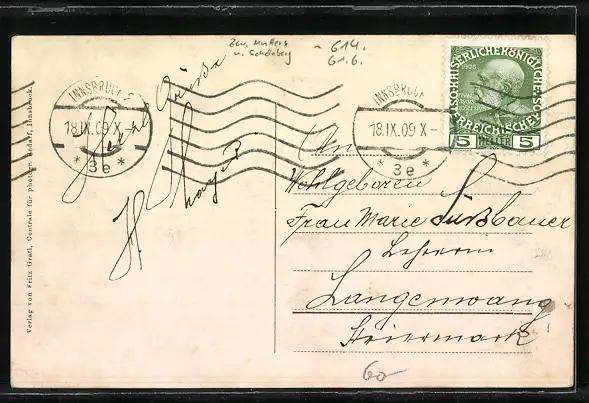 Zw. Mutters
u. Schönberg
~ 614.
61.6.
INNSBRUCK 2
18.IX.09 X-
* 3e *
INNSBRUCK
18.IX.09 X-
* 3e *
KAISERLICHE KÖNIGLICHE
ÖSTERREICHISCHE
5 HELLER 5
Grüße
H. Mayer
An
Wohlgeboren
Frau Marie Süßbauer
Lehrerin
Langenwang
Steiermark
60
Verlag von Fritz Gratl, Centrale für photogr. Bedarf, Innsbruck.